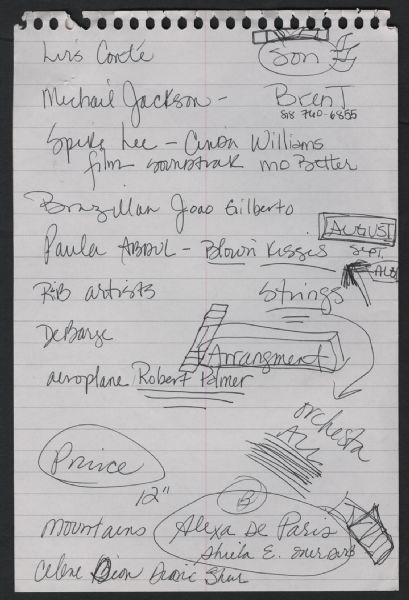 Luis Conté
Son
Michail Jackson - Brent
818 760-6855
Spike Lee - Cinda Williams
film soundtrak mo Better
Brazillian Joao Gilberto
AUGUST
Paula ABDUL - Blown Kisses SEPT.
ALB
R&B artists Strings
DeBarge
Arrangment
aeroplane Robert Palmer
orchesta
Prince
12"
B
mountains Alexa De Paris
Sheila E.
Celene Dion